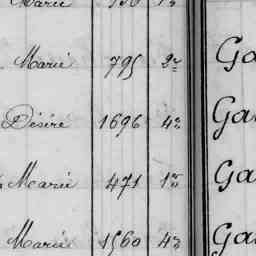 Marié 795 2e Ga
Désiré 1696 4e Ga
Marié 471 1er Ga
Marié 1560 4e Ga